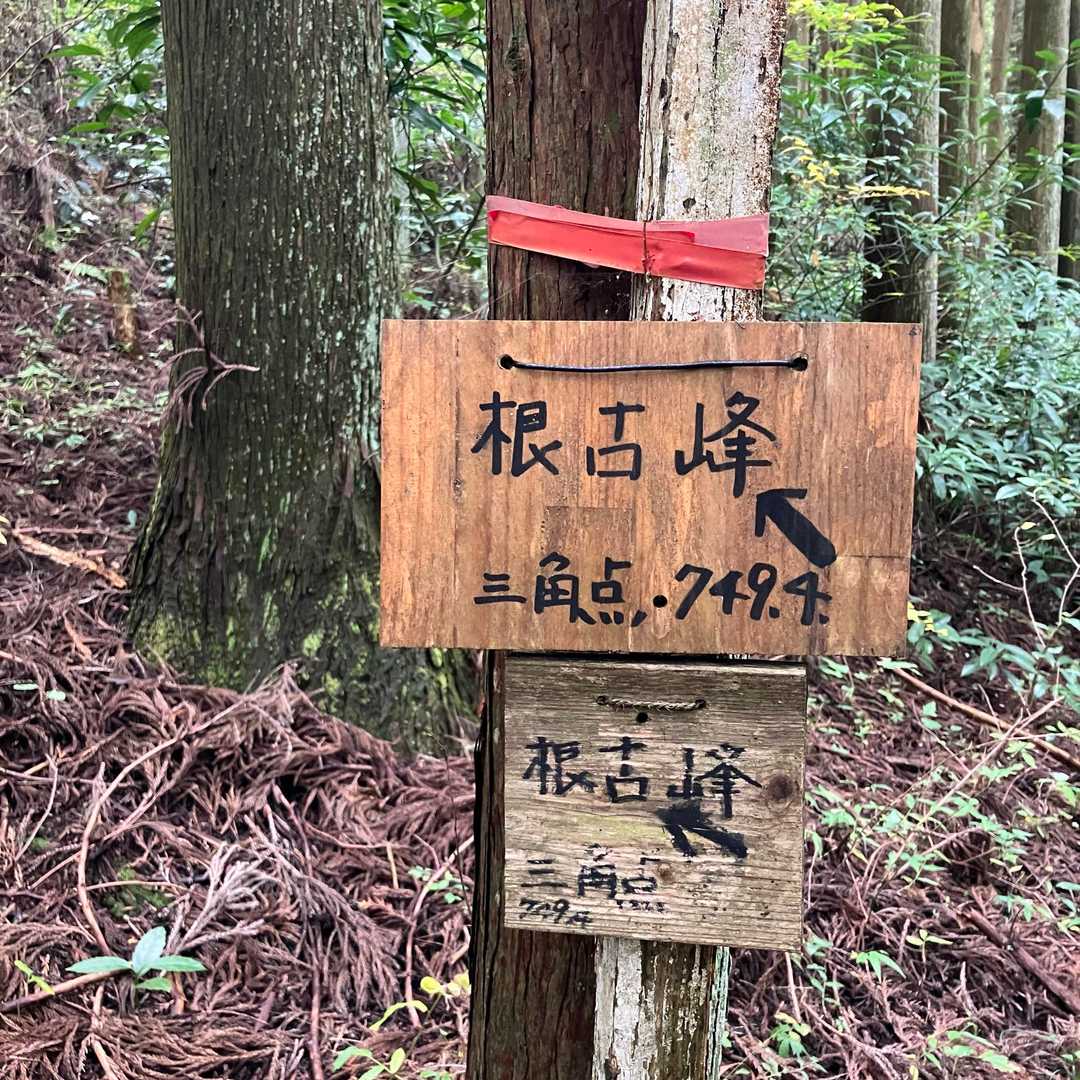 根古峰
三角点, 749.4.
根古峰
三角点
749.4